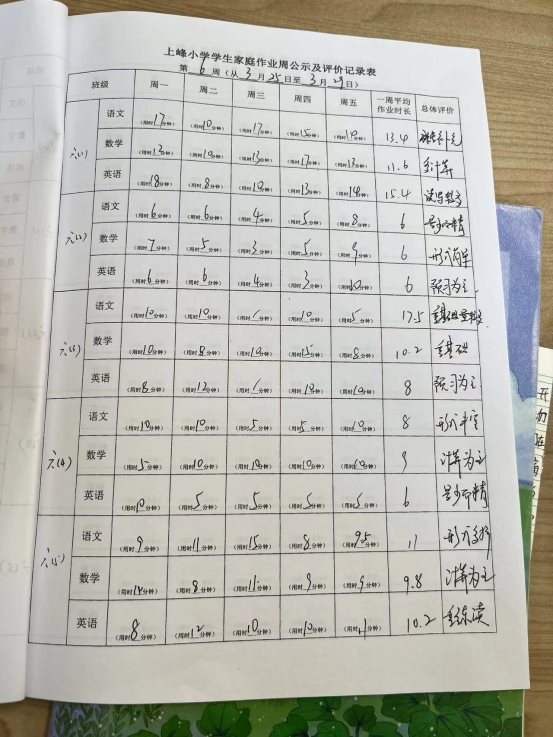 上峰小学学生家庭作业周公示及评价记录表
第 6 周（从 3 月 25 日至 3 月 29 日）
班级 周一 周二 周三 周四 周五 一周平均作业时长 总体评价
六(1) 语文 (用时17分钟) (用时10分钟) (用时17分钟) (用时15分钟) (用时10分钟) 13.4
数学 (用时13分钟) (用时10分钟) (用时13分钟) (用时分钟) (用时13分钟) 11.6 多计算
英语 (用时18分钟) (用时8分钟) (用时10分钟) (用时13分钟) (用时18分钟) 15.4
六(2) 语文 (用时6分钟) (用时6分钟) (用时4分钟) (用时5分钟) (用时8分钟) 6 量少而精
数学 (用时7分钟) (用时5分钟) (用时3分钟) (用时5分钟) (用时9分钟) 6 形式简单
英语 (用时6分钟) (用时6分钟) (用时4分钟) (用时3分钟) (用时10分钟) 6 预习为主
六(3) 语文 (用时10分钟) (用时10分钟) (用时/分钟) (用时10分钟) (用时5分钟) 17.5
数学 (用时10分钟) (用时8分钟) (用时10分钟) (用时15分钟) (用时8分钟) 10.2 重基础
英语 (用时8分钟) (用时12分钟) (用时/分钟) (用时10分钟) (用时10分钟) 8 预习为主
六(4) 语文 (用时10分钟) (用时10分钟) (用时5分钟) (用时5分钟) (用时10分钟) 8 形式丰富
数学 (用时5分钟) (用时10分钟) (用时10分钟) (用时10分钟) (用时10分钟) 9 计算为主
英语 (用时10分钟) (用时5分钟) (用时5分钟) (用时5分钟) (用时5分钟) 6 量少而精
六(5) 语文 (用时9分钟) (用时11分钟) (用时15分钟) (用时8分钟) (用时9.5分钟) 11 形式多样
数学 (用时12分钟) (用时8分钟) (用时11分钟) (用时9分钟) (用时9分钟) 9.8 计算为主
英语 (用时8分钟) (用时12分钟) (用时10分钟) (用时10分钟) (用时11分钟) 10.2 多练读